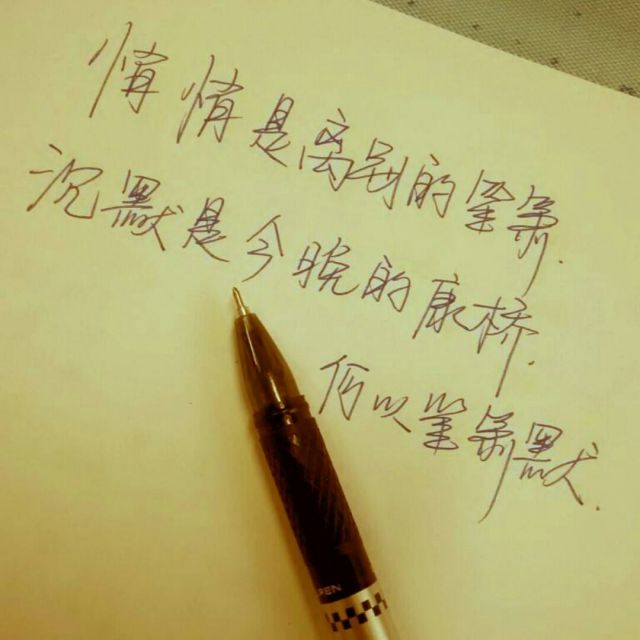 悄悄是离别的笙箫.
沉默是今晚的康桥.
何以笙箫默.
REN